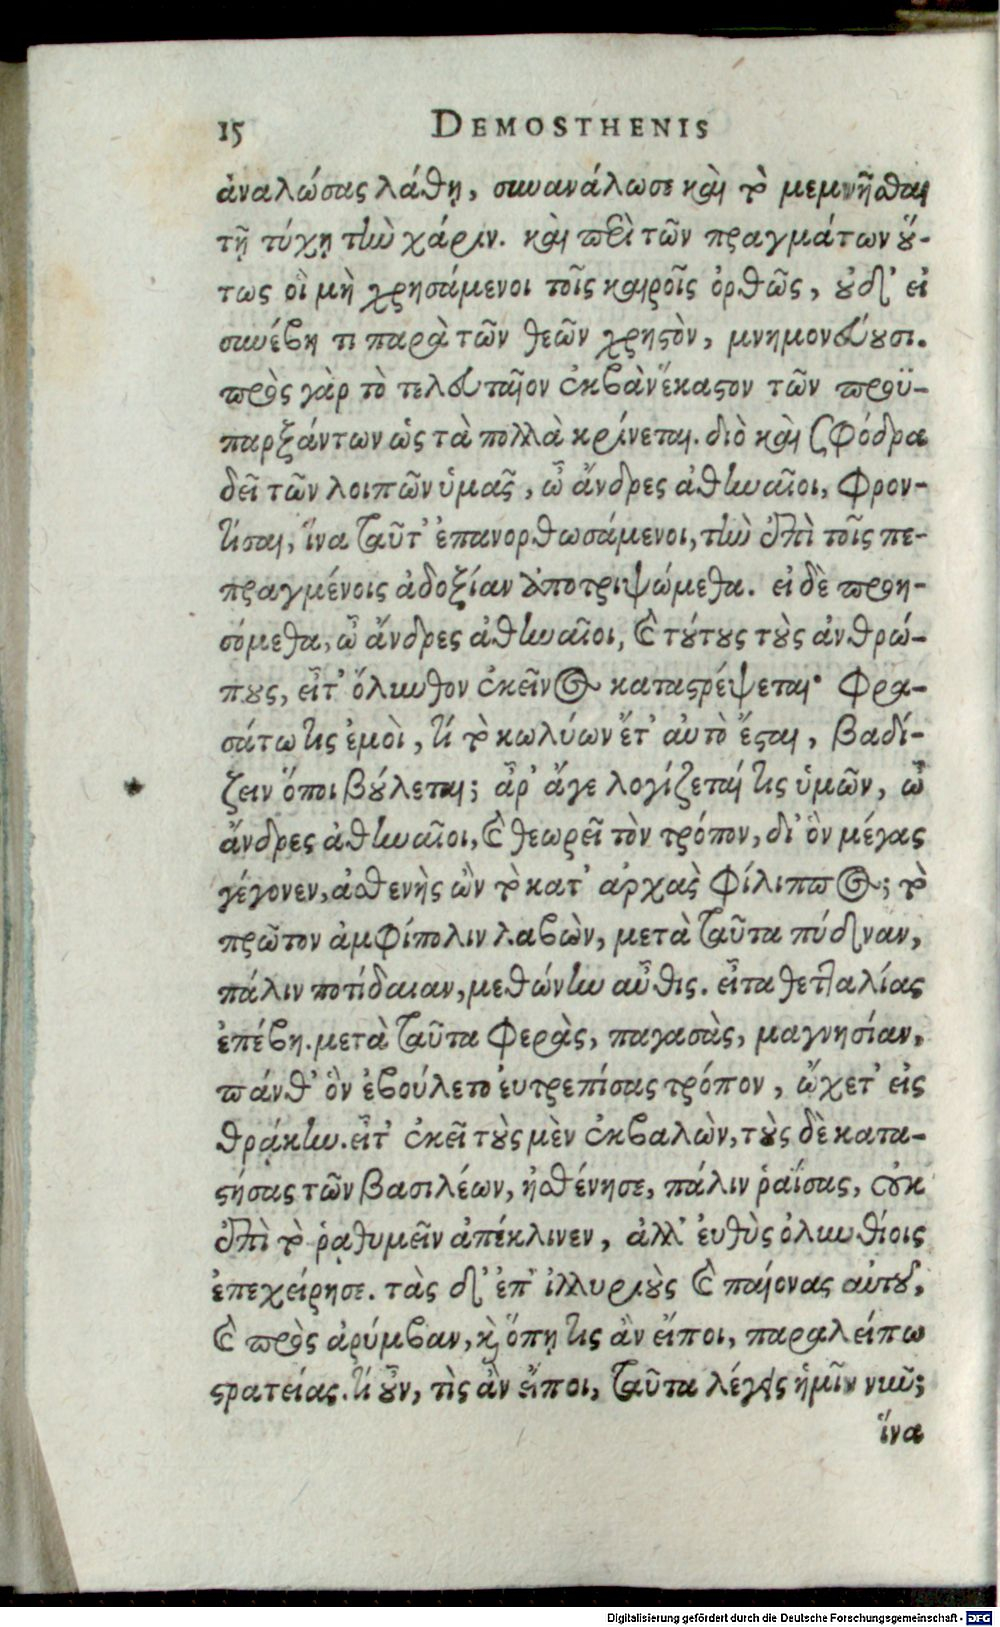 15 DEMOSTHENIS
ἀναλώσας λάθῃ, συνανάλωσε καὶ τὸ μεμνῆσθαι
τῇ τύχῃ τὴν χάριν. καὶ περὶ τῶν πραγμάτων οὕ-
τως οἱ μὴ χρησάμενοι τοῖς καιροῖς ὀρθῶς, οὐδ' εἰ
συνέβη τι παρὰ τῶν θεῶν χρηστὸν, μνημονεύουσι.
πρὸς γὰρ τὸ τελευταῖον ἐκβὰν ἕκαστον τῶν προϋ-
παρξάντων ὡς τὰ πολλὰ κρίνεται. διὸ καὶ σφόδρα
δεῖ τῶν λοιπῶν ὑμᾶς, ὦ ἄνδρες ἀθηναῖοι, φρον-
τίσαι, ἵνα ταῦτ' ἐπανορθωσάμενοι, τὴν ἐπὶ τοῖς πε-
πραγμένοις ἀδοξίαν ἀποτριψώμεθα. εἰ δὲ προη-
σόμεθα, ὦ ἄνδρες ἀθηναῖοι, καὶ τούτους τοὺς ἀνθρώ-
πους, εἶτ' ὄλυνθον ἐκεῖνος καταστρέψεται· φρα-
σάτω τις ἐμοὶ, τί τὸ κωλύων ἔτ' αὐτὸ ἔσται, βαδί-
ζειν ὅποι βούλεται; ἆρ' ἄγε λογίζεταί τις ὑμῶν, ὦ
ἄνδρες ἀθηναῖοι, καὶ θεωρεῖ τὸν τρόπον, δι' ὃν μέγας
γέγονεν, ἀσθενὴς ὢν τὸ κατ' ἀρχὰς φίλιππος; τὸ
πρῶτον ἀμφίπολιν λαβὼν, μετὰ ταῦτα πύδναν,
πάλιν ποτίδαιαν, μεθώνην αὖθις. εἶτα θετταλίας
ἐπέβη. μετὰ ταῦτα φερὰς, παγασὰς, μαγνησίαν,
πάνθ' ὃν ἐβούλετο εὐτρεπίσας τρόπον, ᾤχετ' εἰς
θρᾴκην. εἶτ' ἐκεῖ τοὺς μὲν ἐκβαλὼν, τοὺς δὲ κατα-
στήσας τῶν βασιλέων, ἠσθένησε, πάλιν ῥαΐσας, οὐκ
ἐπὶ τὸ ῥᾳθυμεῖν ἀπέκλινεν, ἀλλ' εὐθὺς ὀλυνθίοις
ἐπεχείρησε. τὰς δ' ἐπ' ἰλλυριοὺς καὶ παίονας αὐτοῦ,
καὶ πρὸς ἀρύμβαν, καὶ ὅπη τις ἂν εἴποι, παραλείπω
στρατείας. τί οὖν, τὶς ἂν εἴποι, ταῦτα λέγεις ἡμῖν νῦν;
ἵνα
Digitalisierung gefördert durch die Deutsche Forschungsgemeinschaft - DFG